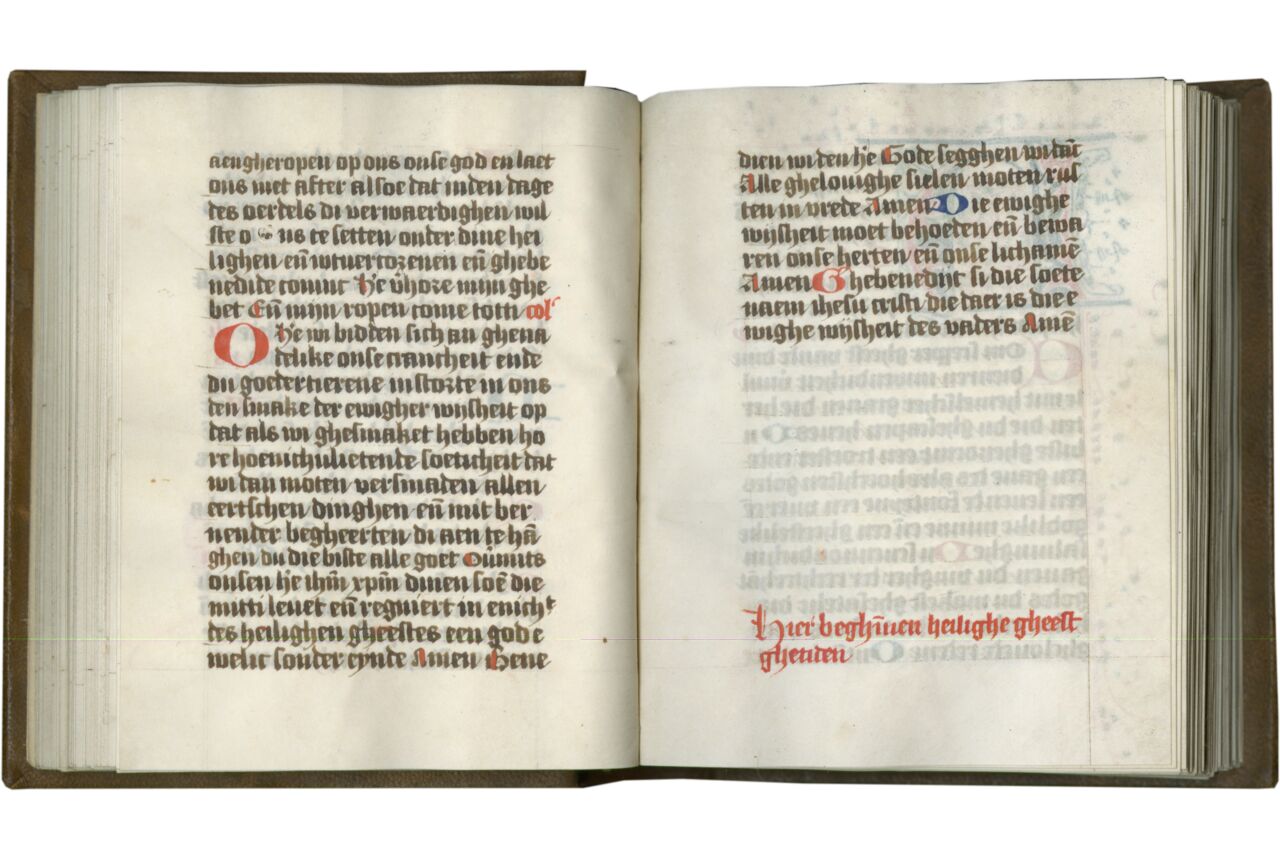 aengheropen op ons onse god en laet
ons niet after alsoe dat inden dage
des oerdels du verwaerdighen wil
ste o ns te setten onder dine hei
lighen eñ wtuercozenen eñ ghebe
nedide comint He v̄hoze mijn ghe
bet Eñ mijn ropen come totti col̛
O He wi bidden sich an ghena
delike onse cranchheit ende
du goedertierene instozte in ons
den smake der ewigher wijsheit op
dat als wi ghesmaket hebben ho
re hoenichulietende soeticheit dat
wi dan moten versmaden allen
eertschen dinghen eñ mit ber
nender begheerten di aen te hā
ghen du die biste alle goet Oūmits
onsen he ihm̄ xpm̄ dinen soē die
mitti leuet eñ regniert in enich
des heilighen gheestes een god e
welic sonder eynde Amen Bene
dien wi den he Gode segghen wi dāc
Alle ghelouighe sielen moten rus
ten in vrede Amen Die ewighe
wijsheit moet behoeden eñ bewa
ren onse herten eñ onse lichamē
Amen Ghebenedijt si die soete
naem ihesu cristi die daer is die e
wighe wijsheit des vaders Amē
Hier beghīnen heilighe gheest
ghetiden